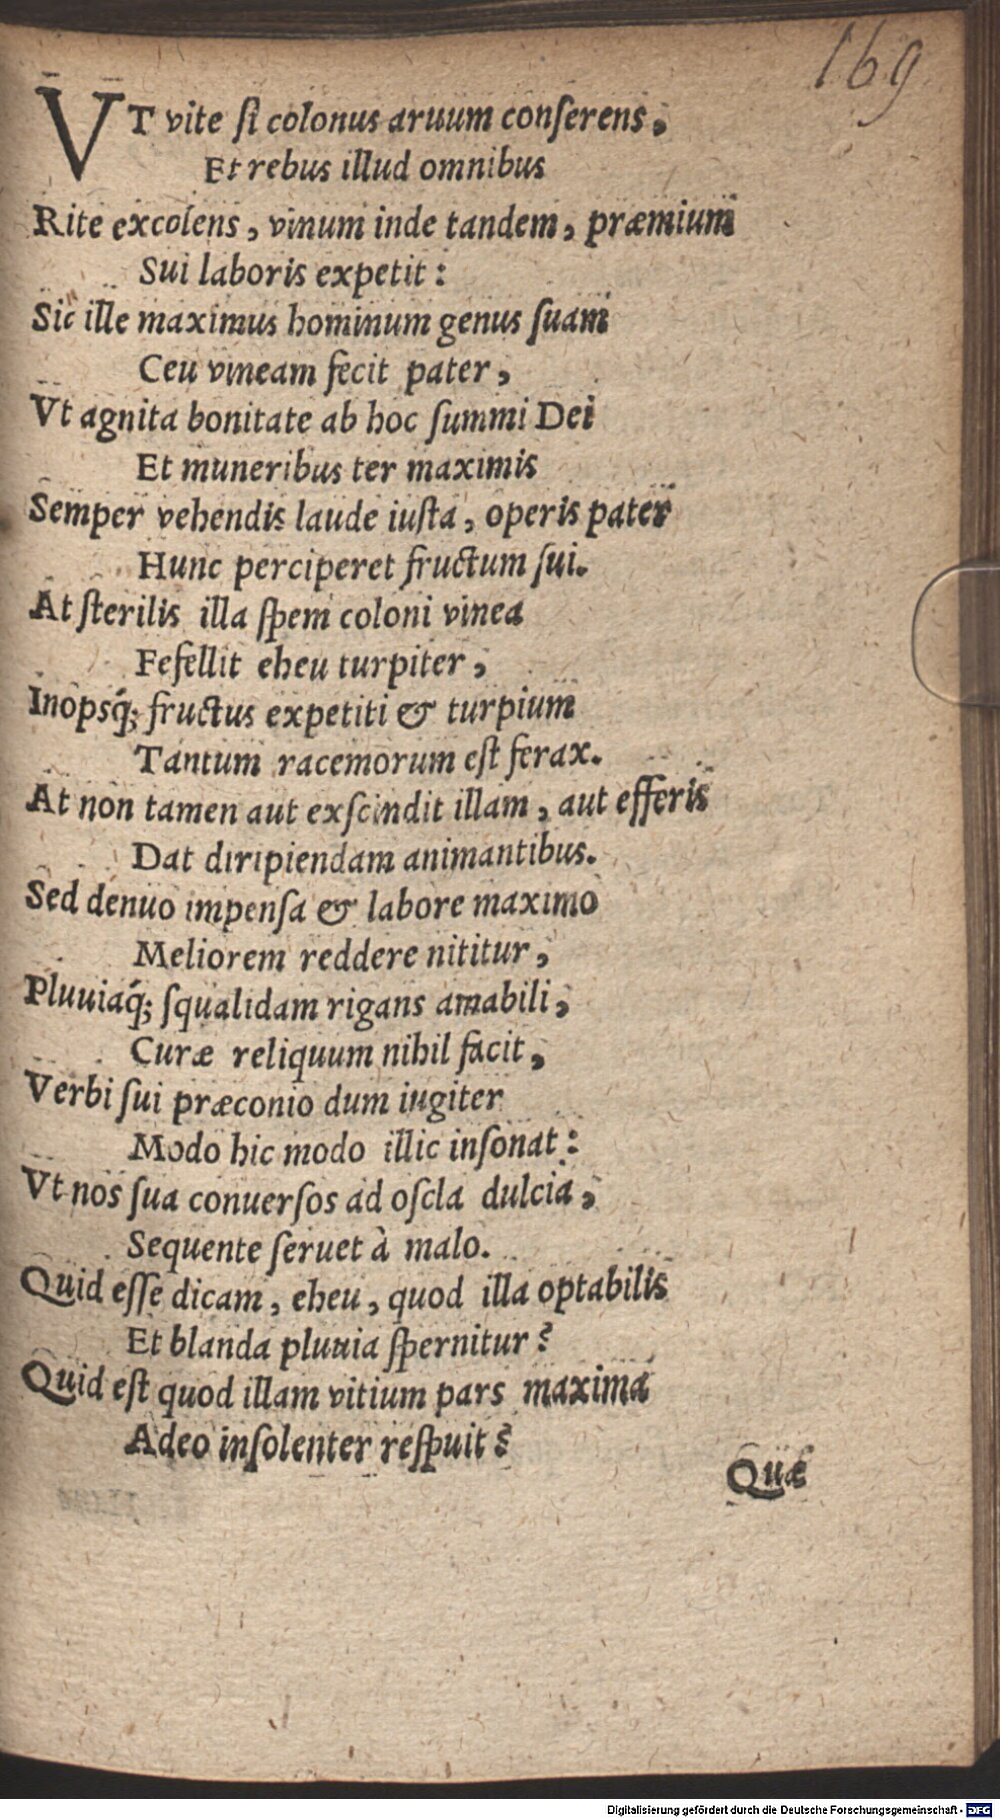 169
VT vite ſi colonus aruum conſerens,
Et rebus illud omnibus
Rite excolens, vinum inde tandem, præmium
Sui laboris expetit:
Sic ille maximus hominum genus ſuam
Ceu vineam fecit pater,
Vt agnita bonitate ab hoc ſummi Dei
Et muneribus ter maximis
Semper vehendis laude iuſta, operis pater
Hunc perciperet fructum ſui.
At ſterilis illa ſpem coloni vinea
Fefellit eheu turpiter,
Inopsq́; fructus expetiti & turpium
Tantum racemorum eſt ferax.
At non tamen aut exſcindit illam, aut efferis
Dat diripiendam animantibus.
Sed denuo impenſa & labore maximo
Meliorem reddere nititur,
Pluuiaq́; ſqualidam rigans amabili,
Curæ reliquum nihil facit,
Verbi ſui præconio dum iugiter
Modo hic modo illic inſonat:
Vt nos ſua conuerſos ad oſcla dulcia,
Sequente ſeruet à malo.
Quid eſſe dicam, eheu, quod illa optabilis
Et blanda pluuia ſpernitur?
Quid eſt quod illam vitium pars maxima
Adeo inſolenter reſpuit?
Quæ
Digitalisierung gefördert durch die Deutsche Forschungsgemeinschaft - DFG